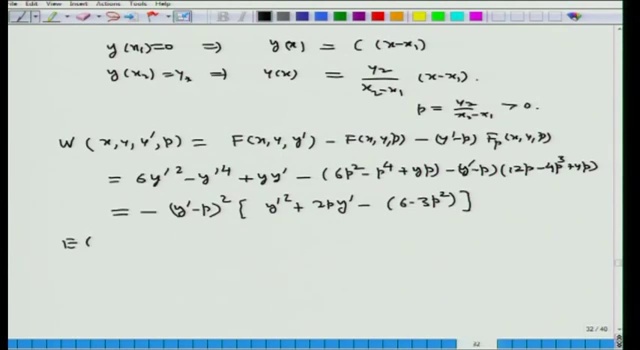 Edit View Insert Actions Tools Help
y(x₁)=0 ⇒ y(x) = C (x-x₁)
y(x₂)=y₂ ⇒ y(x) = y₂/(x₂-x₁) (x-x₁).
p = y₂/(x₂-x₁) >0.
W(x,y,y',p) = F(x,y,y') - F(x,y,p) - (y'-p) Fₚ(x,y,p)
= 6y'² - y'⁴ + yy' - (6p² - p⁴ + yp) - (y'-p)(12p-4p³+y)
= - (y'-p)² [ y'² + 2py' - (6-3p²) ]
E(
32 / 40
32